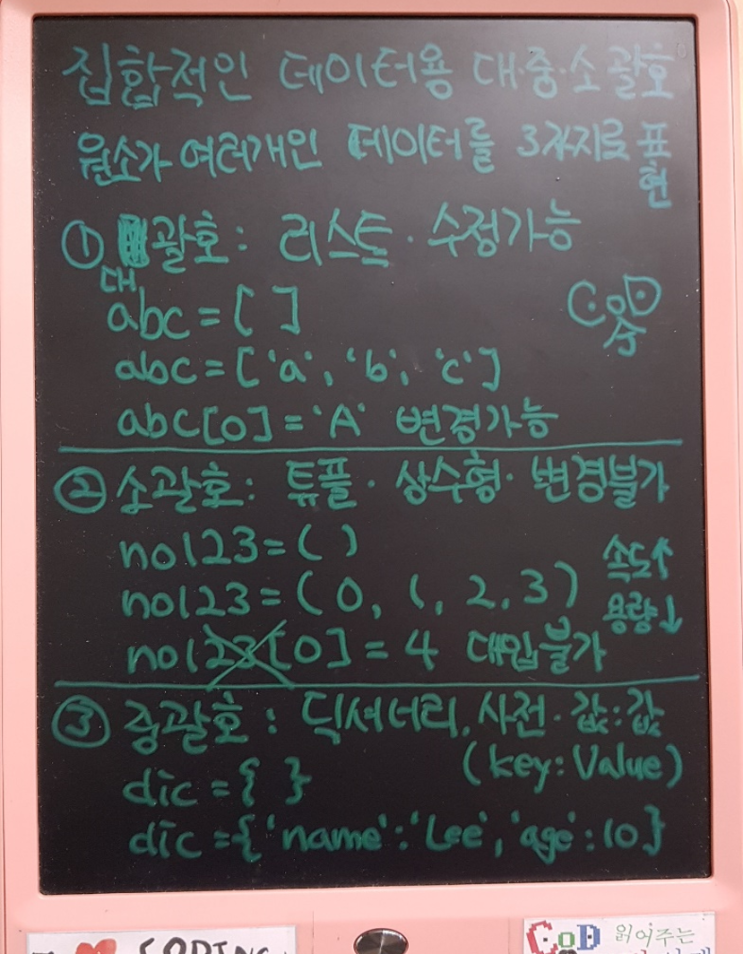 집합적인 데이터용 대·중·소 괄호
원소가 여러개인 데이터를 3가지로 표현
① 대괄호 : 리스트 · 수정가능
abc = [ ]
CoD
abc = ['a', 'b', 'c']
abc[0] = 'A' 변경가능
② 소괄호 : 튜플 · 상수형 · 변경불가
no123 = ( )
속도↑
no123 = (0, 1, 2, 3)
용량↓
no123[0] = 4 대입불가
③ 중괄호 : 딕셔너리, 사전 · 값:값
(key:Value)
dic = { }
dic = {'name':'Lee', 'age':10}
CODING
CoD 읽어주는